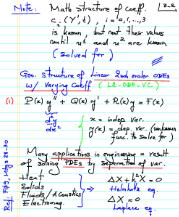 Note: Math structure of coeff. L2-2
c_i (Y', t), i = 0, 1, ..., 3
is known, but not their values
until and are known
(solved for)
Gen. structure of Linear 2nd order ODEs
w/ varying coeff (L2-ODE-VC)
(1) P(x) y'' + Q(x) y' + R(x) y = F(x)
x = indep var.
y(x) = dep. var. (unknown
func. to solve for)
Many applications in engineering = result
of solving PDEs by separation of var.
Heat
Solids
Fluids / Acoustics
Electromag.
ΔX + X = 0
Helmholtz eq.
ΔX = 0
Laplace eq.